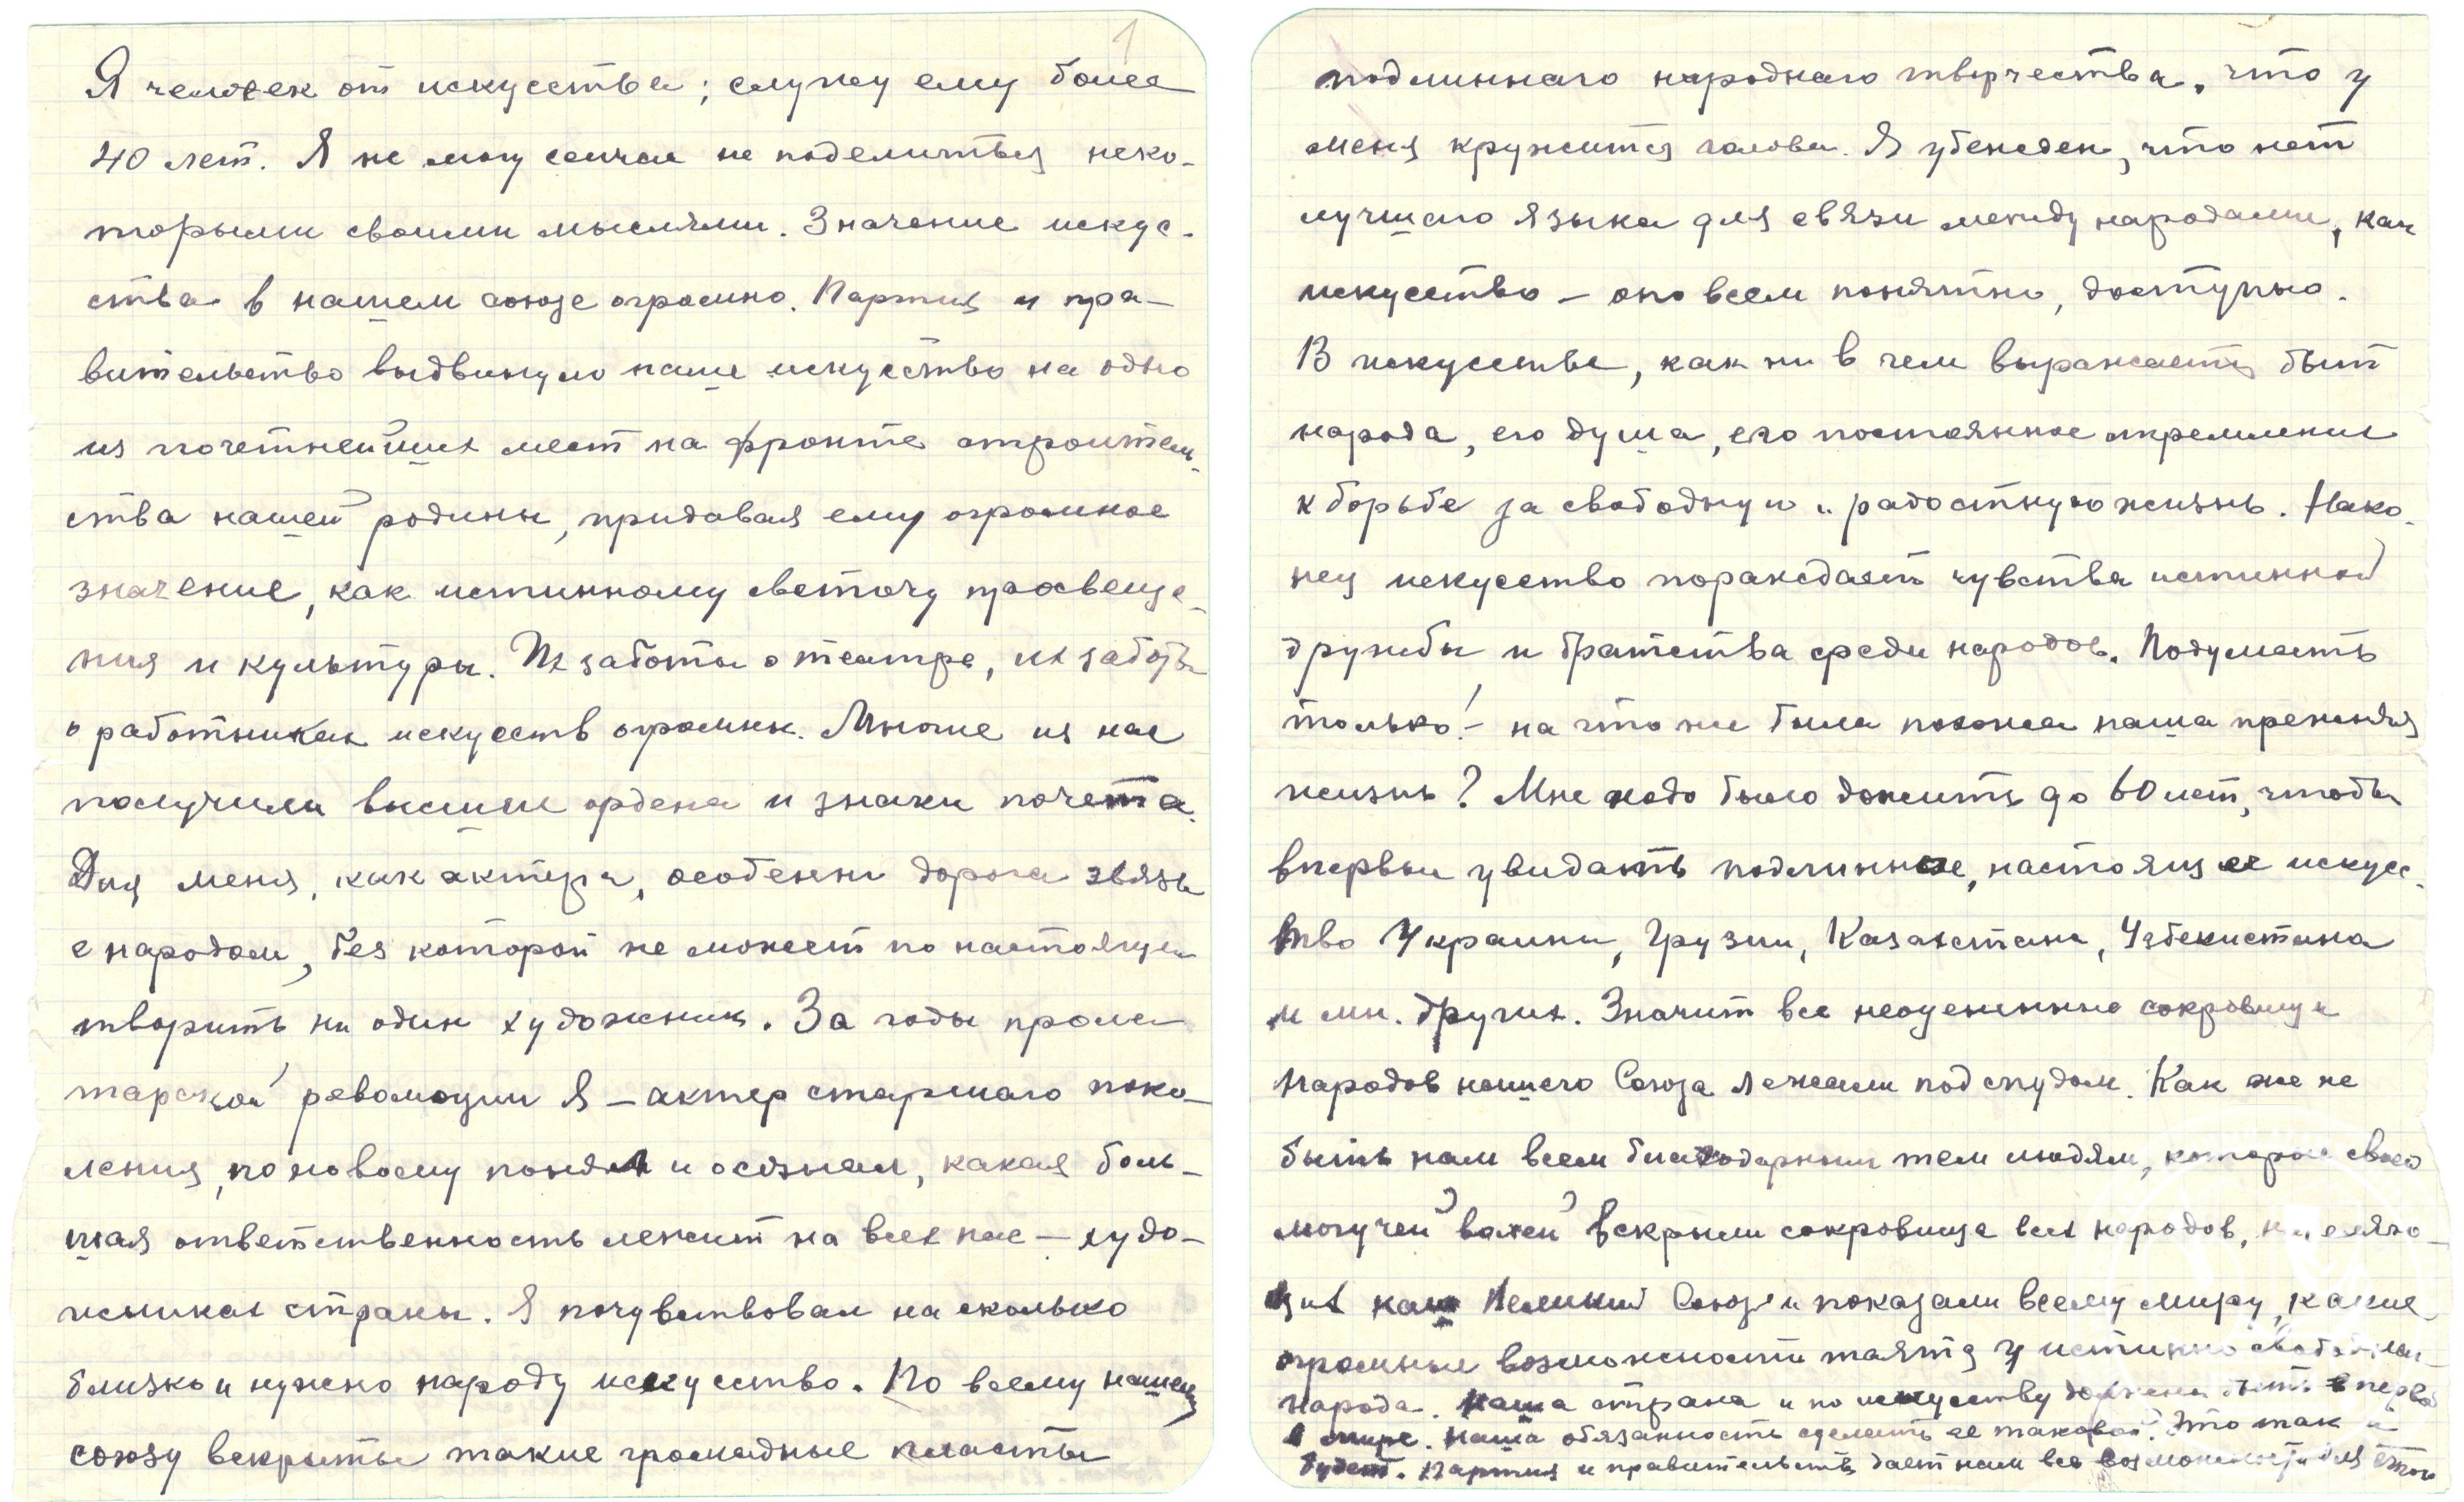 1
Я человек от искусства; служу ему более
40 лет. Я не могу сейчас не поделиться неко-
торыми своими мыслями. Значение искус-
ства в нашем союзе огромно. Партия и пра-
вительство выдвинуло наше искусство на одно
из почетнейших мест на фронте строитель-
ства нашей родины, придавая ему огромное
значение, как истинному светочу просвеще-
ния и культуры. Их заботы о театре, их заботы
о работниках искусств огромны. Многие из нас
получили высшие ордена и знаки почета.
Для меня, как актера, особенно дорога связь
с народом, без которой не может по настоящему
творить ни один художник. За годы проле-
тарской революции Я – актер старшаго поко-
ления, по новому понял и осознал, какая боль-
шая ответственность лежит на всех нас – худо-
жниках страны. Я почувствовал на сколько
близко и нужно народу искусство. По всему нашему
союзу вскрыты такие громадные пласты
подлиннаго народнаго творчества, что у
меня кружится голова. Я убежден, что нет
лучшаго языка для связи между народами, как
искусство – оно всем понятно, доступно.
В искусстве, как ни в чем выражается быт
народа, его душа, его постоянное стремление
к борьбе за свободную и радостную жизнь. Нако-
нец искусство порождает чувства истинной
дружбы и братства среди народов. Подумать
только! – на что же была похожа наша прежняя
жизнь? Мне надо было дожить до 60 лет, чтобы
впервые увидать подлинное, настоящее искусс-
тво Украины, Грузии, Казахстана, Узбекистана
и мн. других. Значит все неоценимые сокровища
народов нашего Союза лежали под спудом. Как же не
быть нам всем благодарными тем людям, которые своей
могучей волей вскрыли сокровища всех народов, населяю-
щих наш Великий Союз и показали всему миру, какие
огромные возможности таятся у истинно свободнаго
народа. Наша страна и по искусству должна быть первой
в мире. Наша обязанность сделать ее таковой. Это так и
будет. Партия и правительство дает нам все возможности для этого